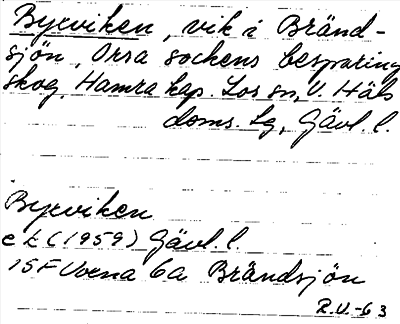 Byxviken, vik i Bränd-
sjön, Orsa sockens besparing
skog, Hamra kap. Los sn, V. Häls
doms. lg, Gävl. l.
Byxviken
ek (1959) Gävl. l.
15F Voxna 6a Brändsjön
R.U.-63